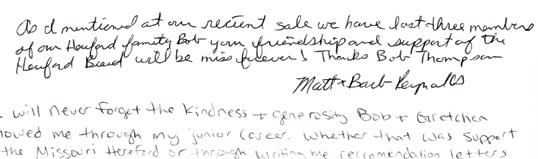 As I mentioned at our recent sale we have lost three members
of our Hereford family Bob your friendship and support of the
Hereford Breed will be miss forever! Thanks Bob Thompson
Matt + Barb Reynolds
will never forget the kindness + generosity Bob + Gretchen
howed me through my junior career. Whether that was support
the Missouri Hereford or through writing me recomendation letters